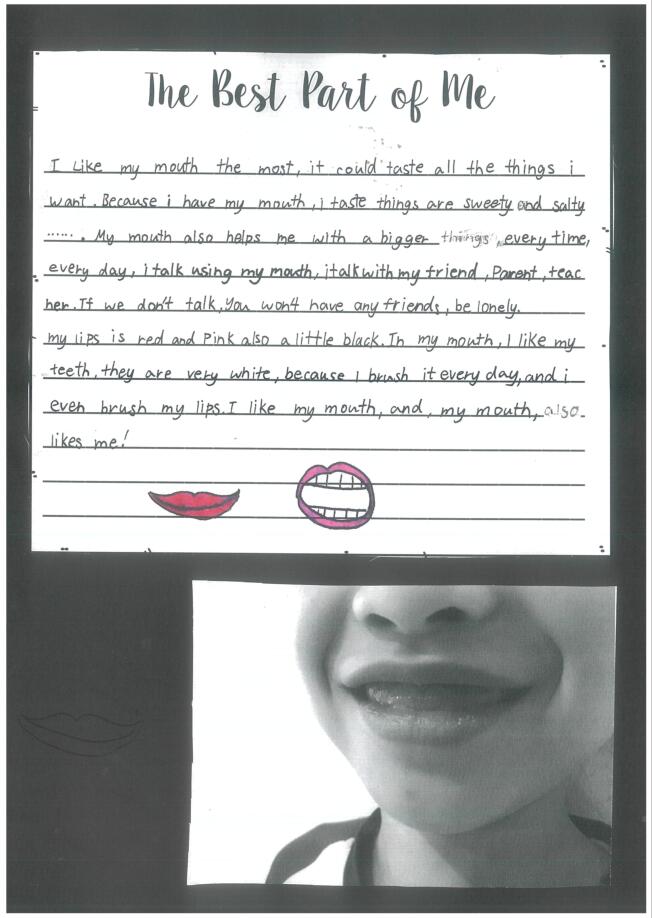 The Best Part of Me
I Like my mouth the most, it could taste all the things i
want. Because i have my mouth, i taste things are sweety and salty
...... . My mouth also helps me with a bigger things, every time,
every day, i talk using my mouth, i talk with my friend, Parent, teac
her. If we don't talk, You won't have any friends, be lonely.
my lips is red and Pink also a little black. In my mouth, I like my
teeth, they are very white, because I brush it every day, and i
even brush my lips. I like my mouth, and, my mouth, also
likes me!